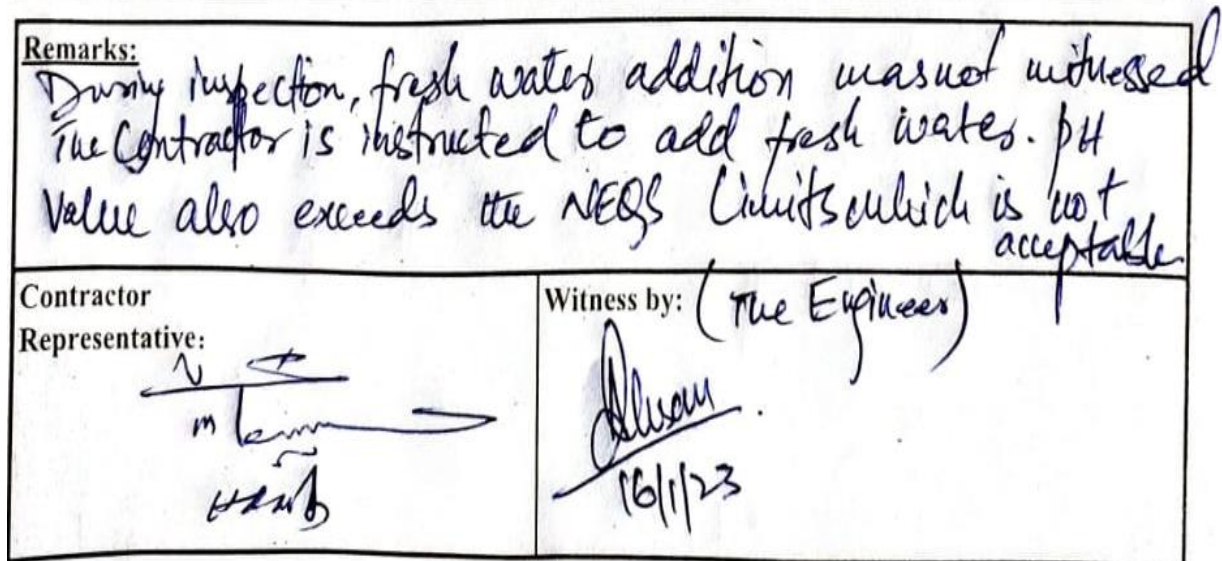 Remarks:
During inspection, fresh water addition was not witnessed
The Contractor is instructed to add fresh water. pH
Value also exceeds the NEQS Limits which is not
acceptable
Contractor
Representative:
Witness by: (The Engineer)
16/1/23